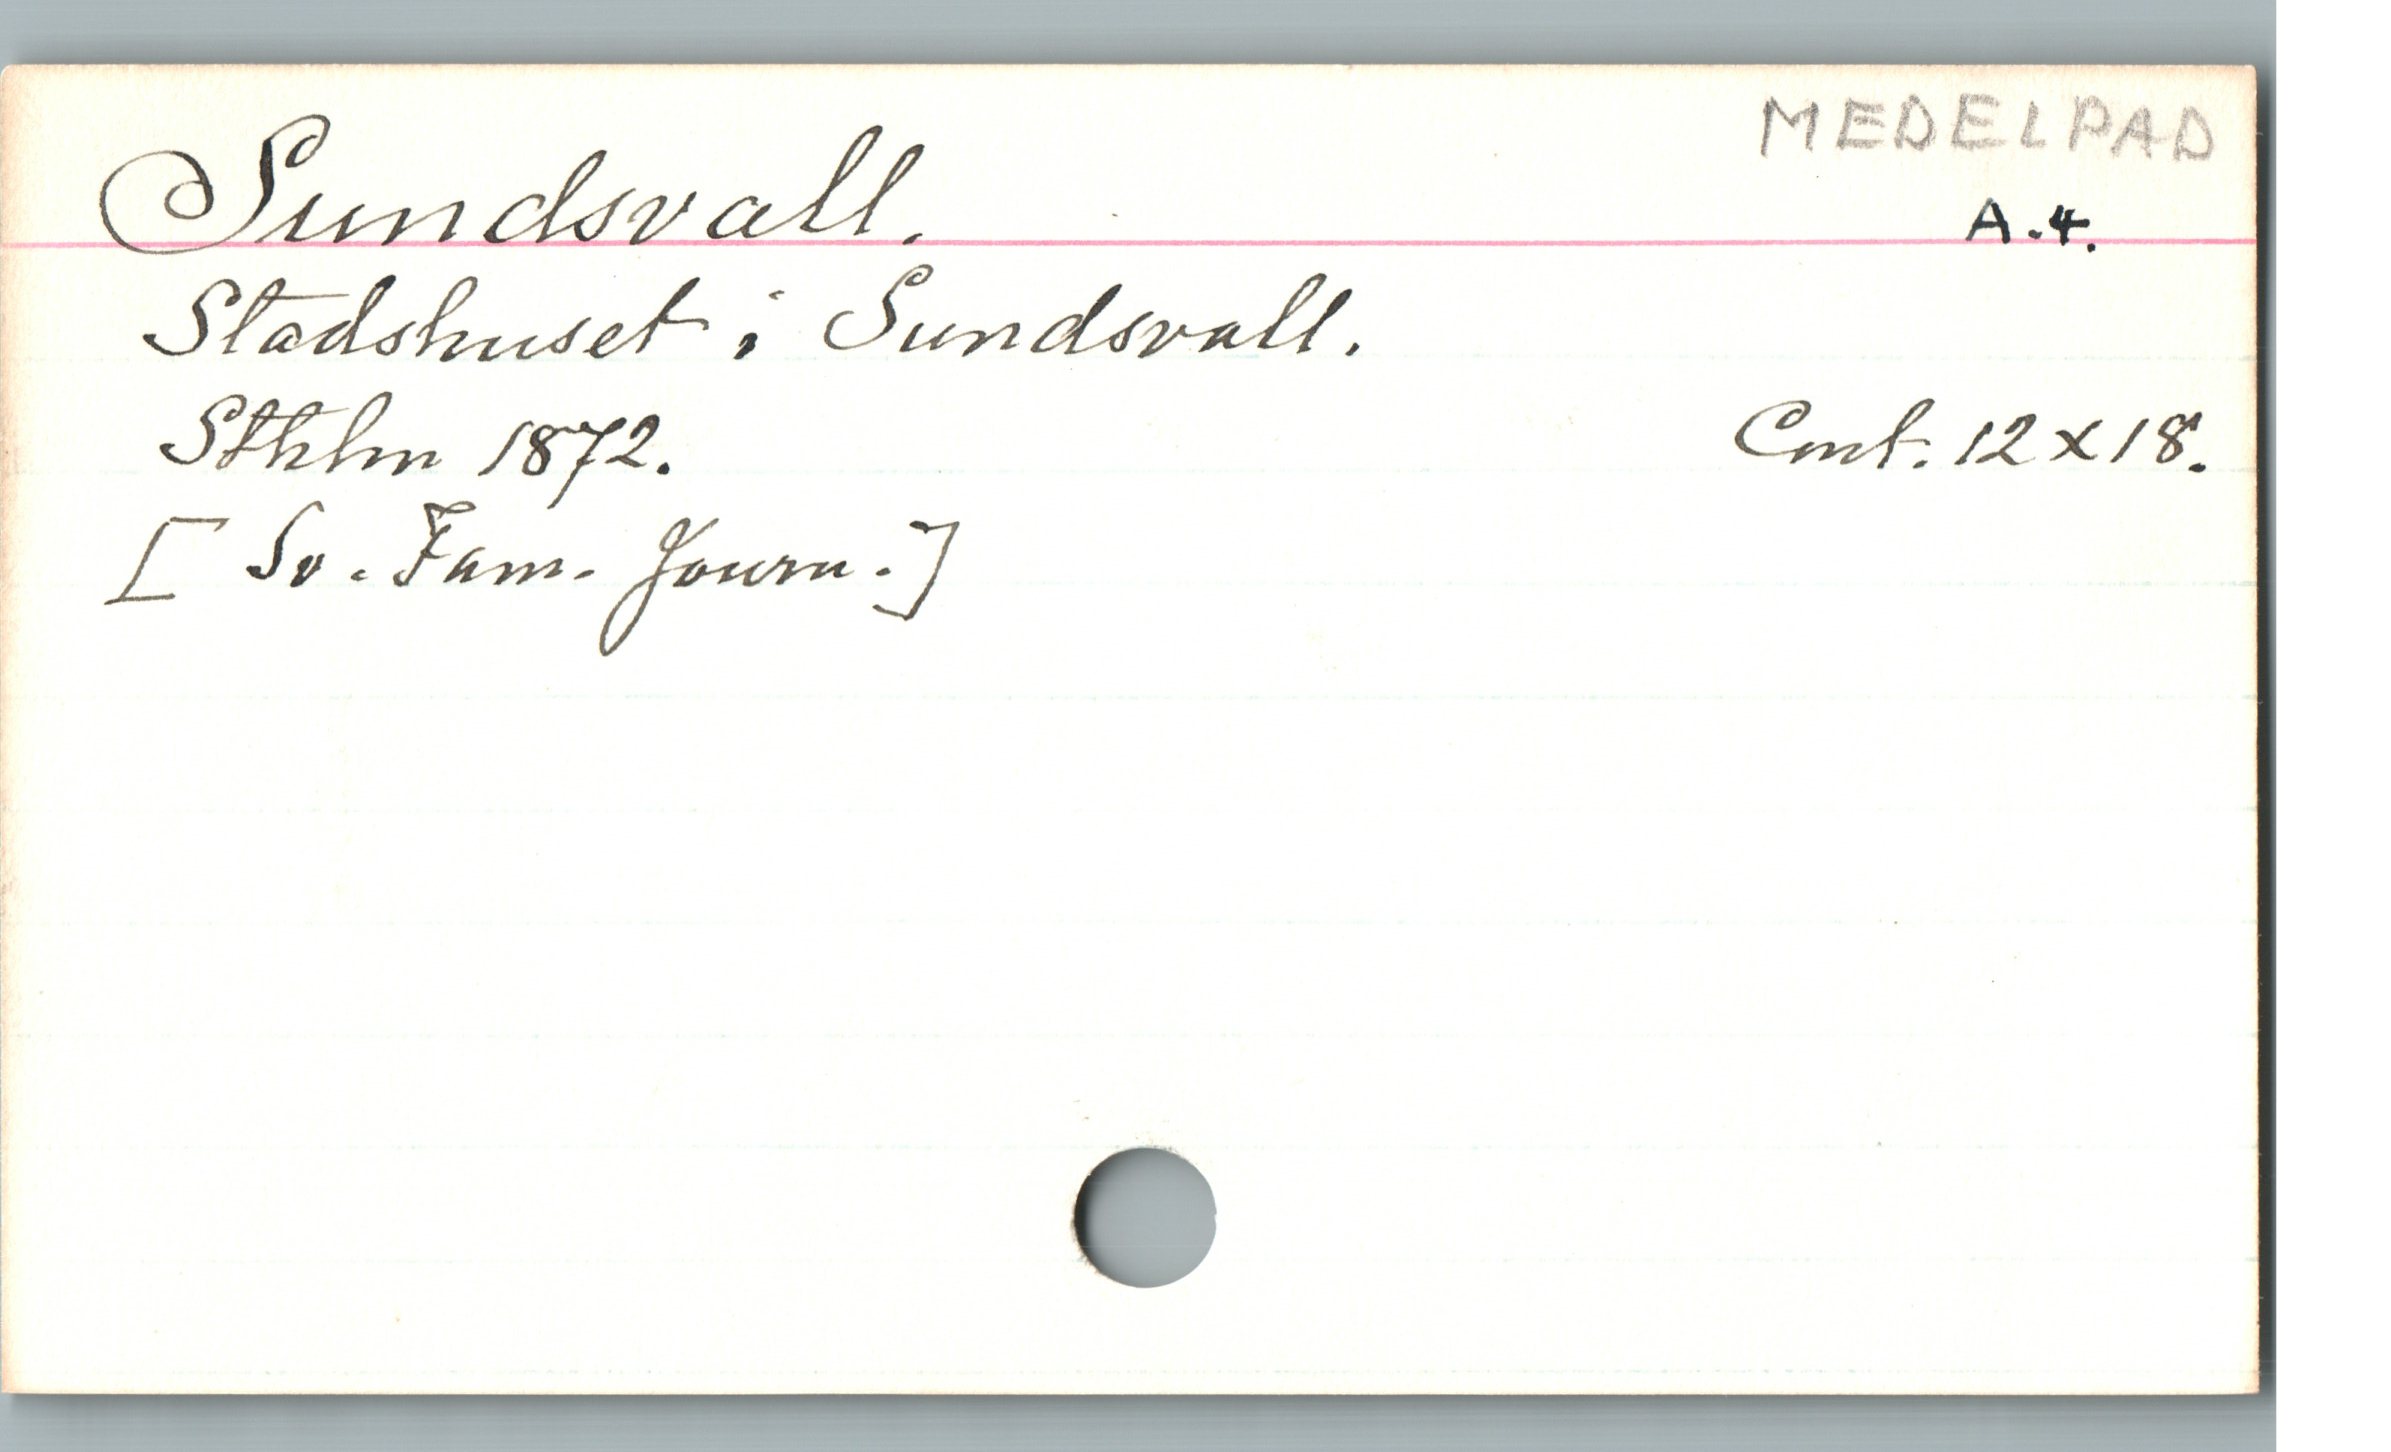 MEDELPAD
Sundsvall. A.4.
Stadshuset i Sundsvall.
Sthlm 1872. Cont. 12 x 18.
[Sv. Fam. Journ.]